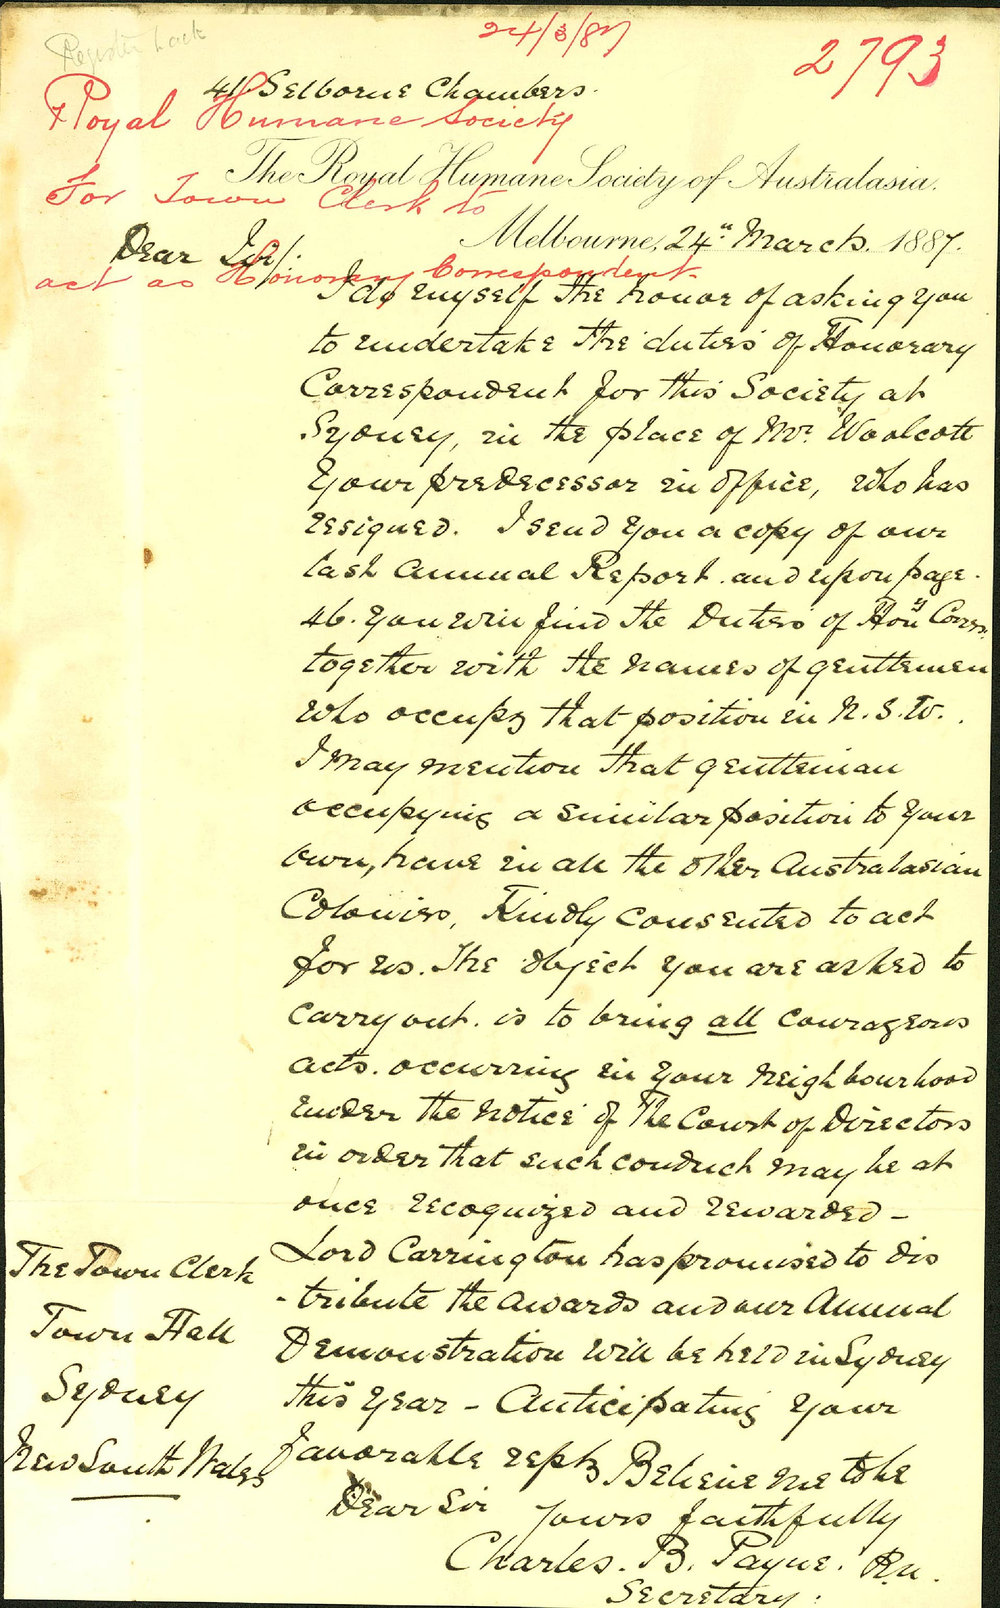 Register back
24/3/87
2793
41 Selborne Chambers.
Royal Humane Society
The Royal Humane Society of Australasia.
For Town Clerk to
Melbourne, 24th March. 1887.
Dear Sir/.
act as Honorary Correspondent
I do myself the honor of asking you
to undertake the duties of Honorary
Correspondent for this Society at
Sydney, in the place of Mr. Woolcott
your predecessor in office, who has
resigned. I send you a copy of our
last Annual Report. and upon page.
46. you will find the Duties of Hony Corres.
together with the names of gentlemen
who occupy that position in N.S.W..
I may mention that gentleman
occupying a similar position to your
own, have in all the other Australasian
Colonies, Kindly consented to act
for us. The object you are asked to
carry out. is to bring all courageous
acts. occurring in your neighbourhood
under the notice of The Court of Directors
in order that such conduct may be at
once recognized and rewarded -
Lord Carrington has promised to dis
-tribute the awards and our Annual
Demonstration will be held in Sydney
this year - Anticipating your
favorable reply Believe me to be
Dear Sir Yours faithfully
Charles. B. Payne. R.N.
Secretary.
The Town Clerk
Town Hall
Sydney
New South Wales